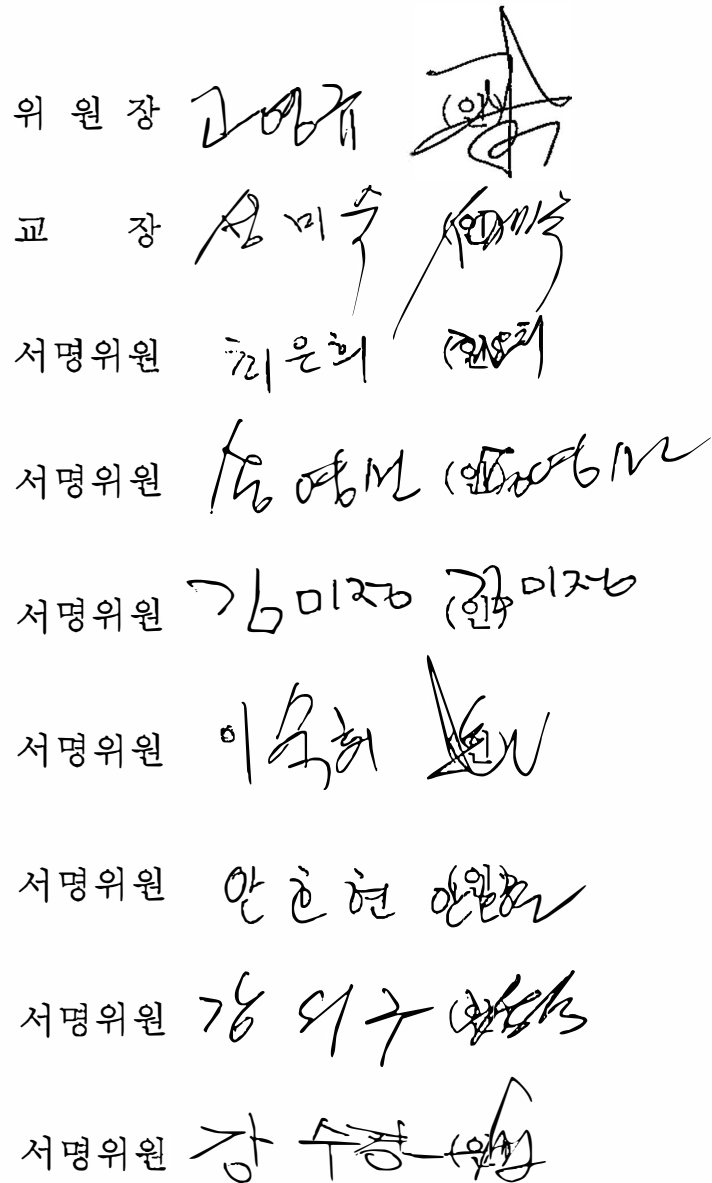 위 원 장 고영규 (인)
교 장 성미숙 (인)
서명위원 최은희 (인)
서명위원 송영선 (인)
서명위원 김미정 (인) 김미정
서명위원 이숙희 (인)
서명위원 안효현 (인)
서명위원 강 구 (인)
서명위원 강수경 (인)